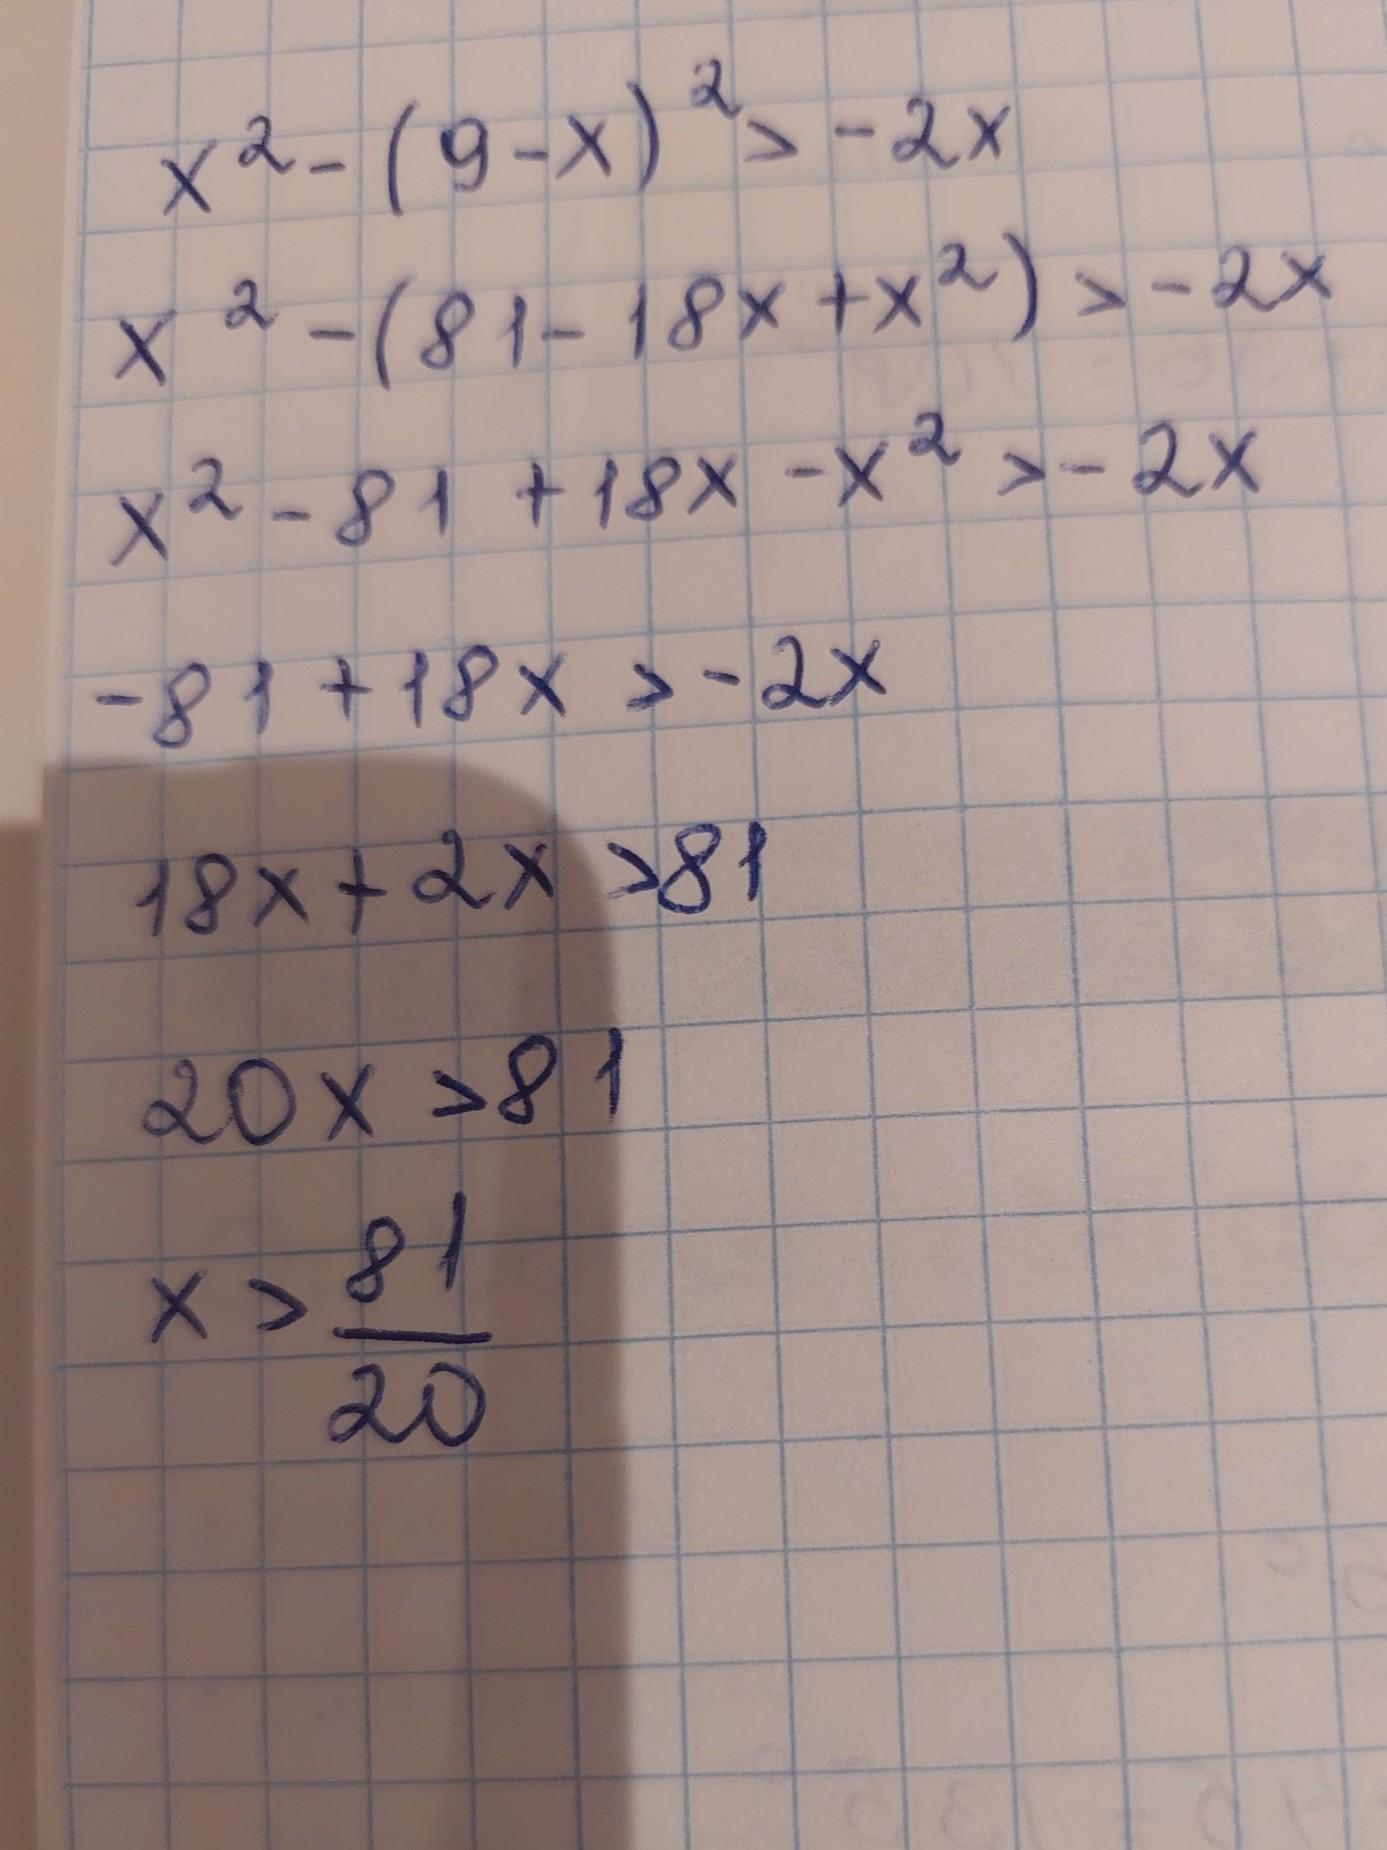 x² - (9 - x)² > -2x
x² - (81 - 18x + x²) > -2x
x² - 81 + 18x - x² > -2x
-81 + 18x > -2x
18x + 2x > 81
20x > 81
x > 81/20